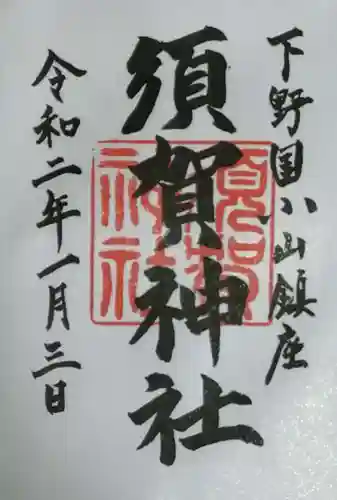 下野国小山鎮座
須賀神社
令和二年一月三日
須賀神社